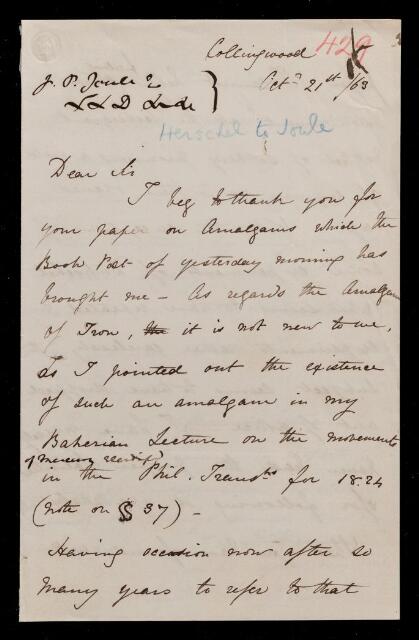 Collingwood
429
Octr 21st /63
J. P. Joule
LLD
Herschel to Joule
Dear Sir
I beg to thank you for
your paper on Amalgams which the
Book Post of yesterday morning has
brought me – As regards the Amalgam
of Iron, the it is not new to me,
as I pointed out the existence
of such an amalgam in my
Bakerian Lecture on the movements
of mercury
in the Phil. Transns for 1824
(note on § 37) –
Having occasion now after so
many years to refer to that